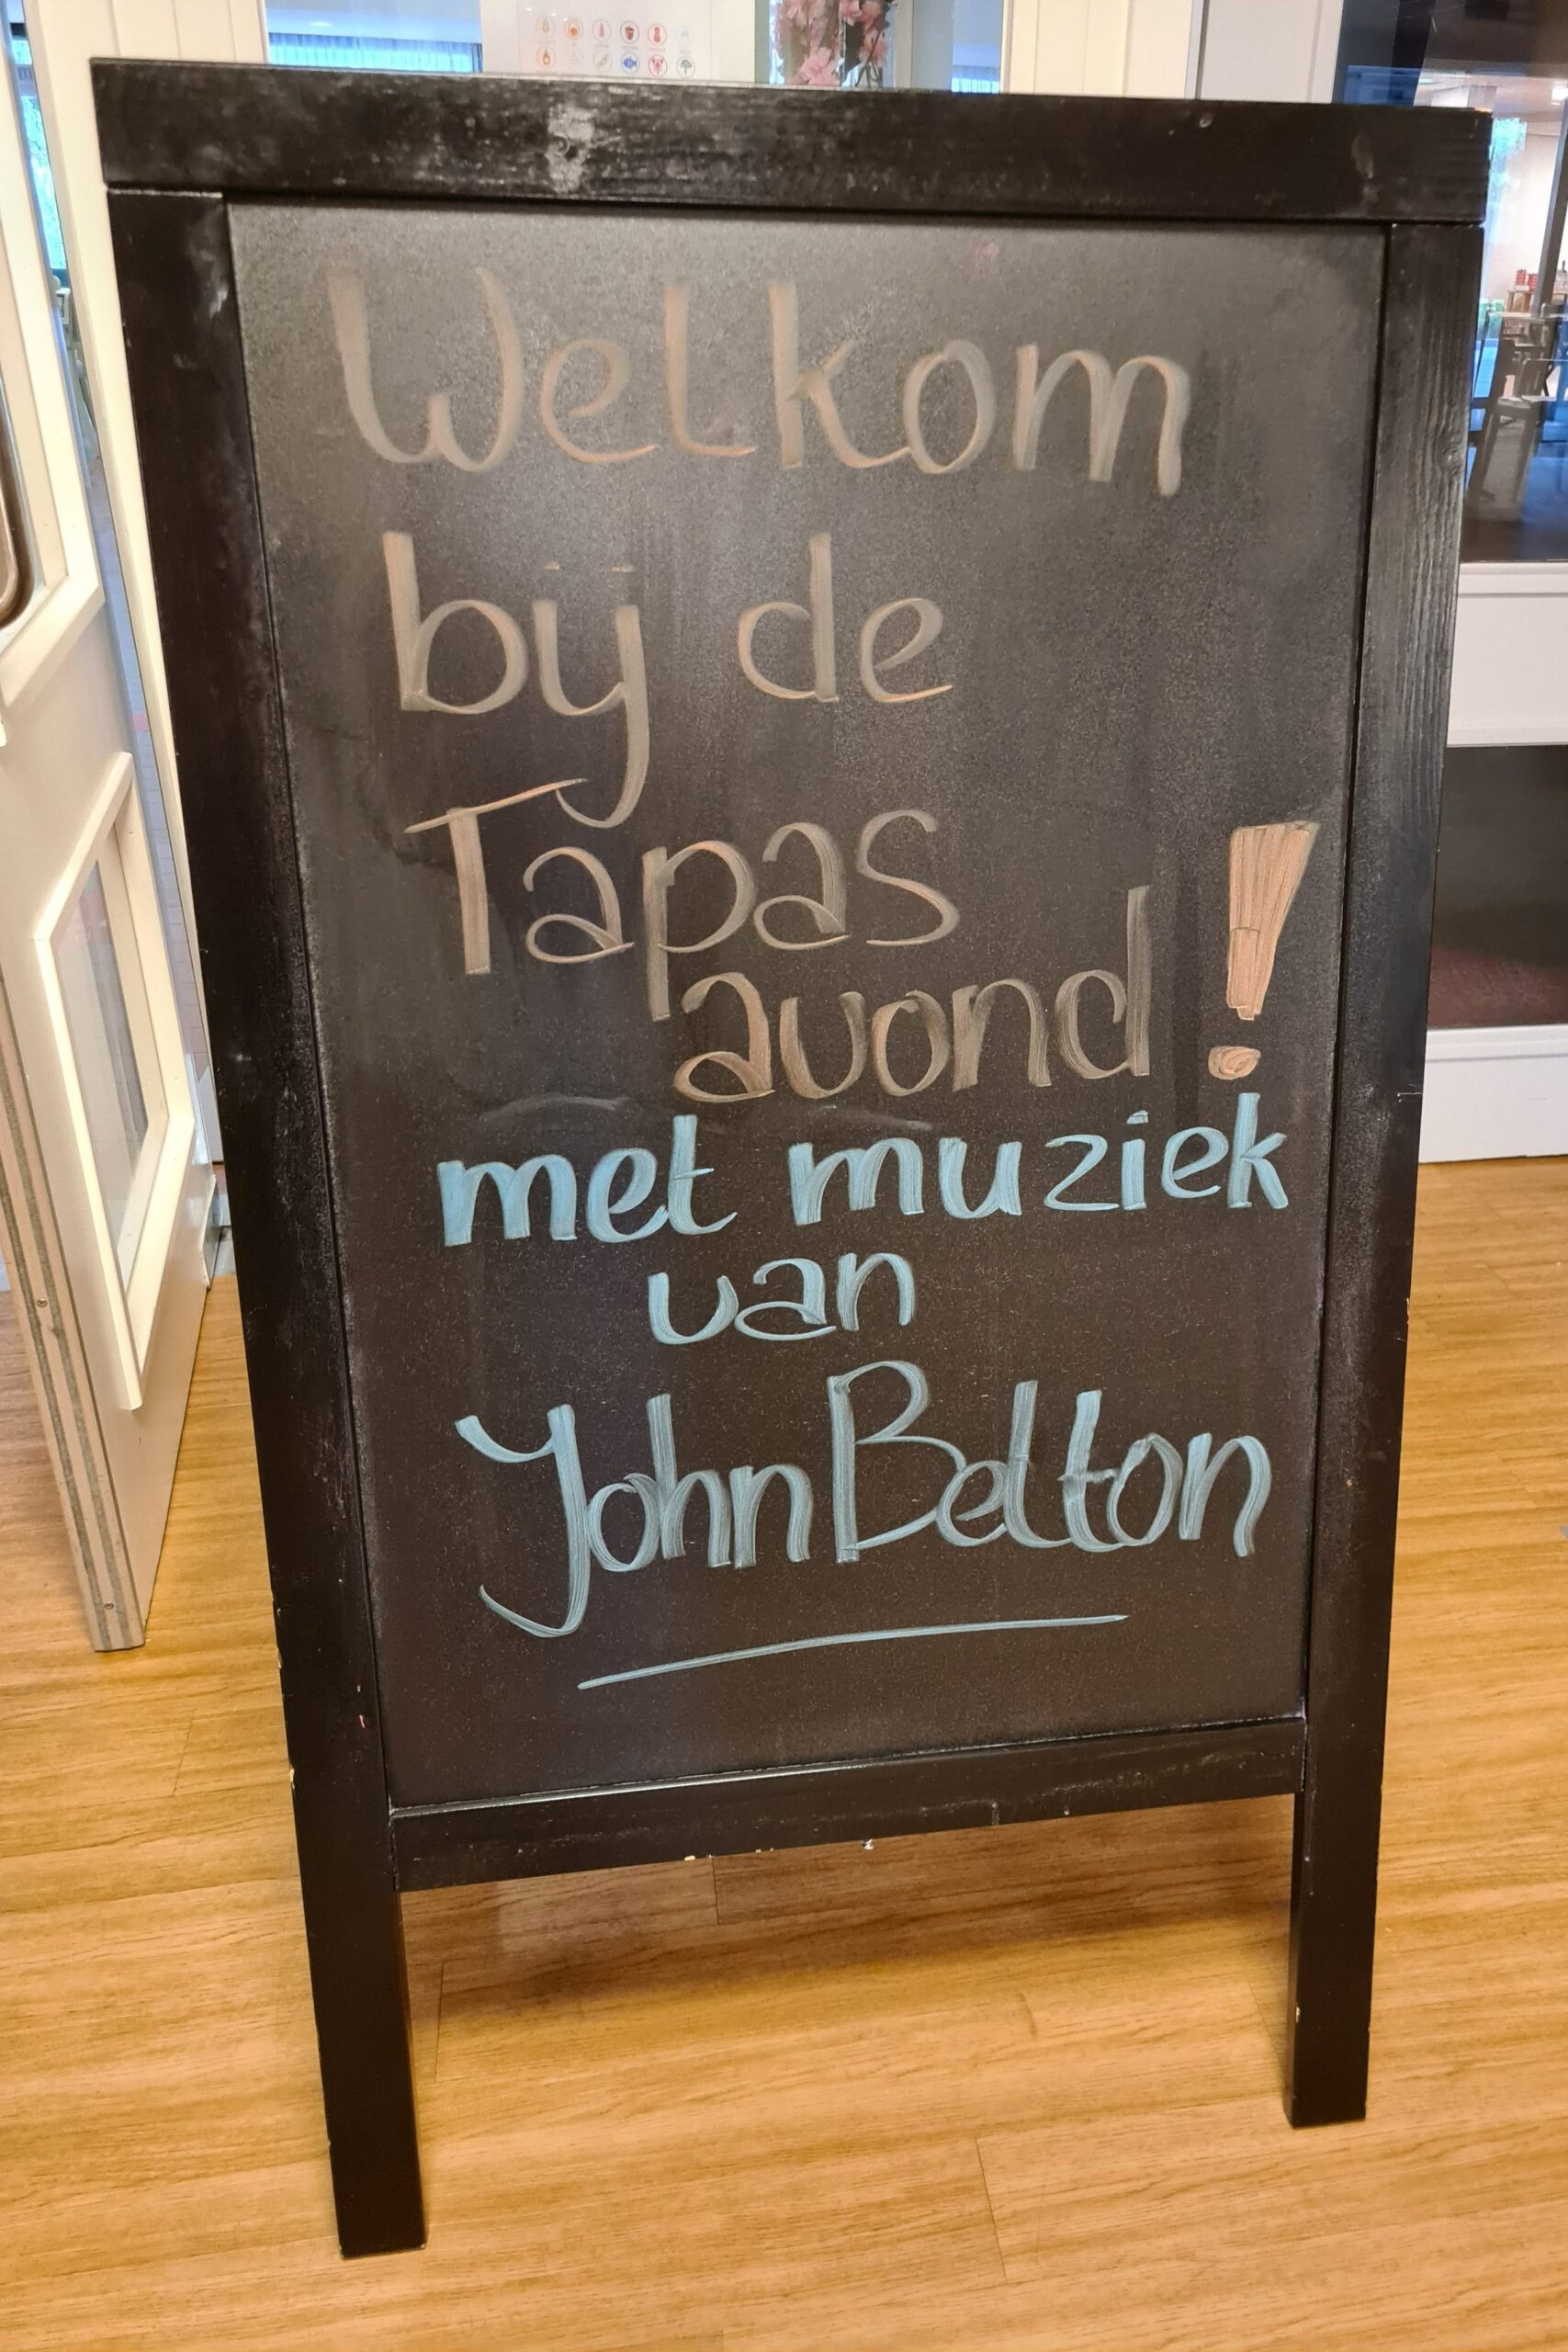 Welkom
bij de
Tapas
avond!
met muziek
van
John Belton